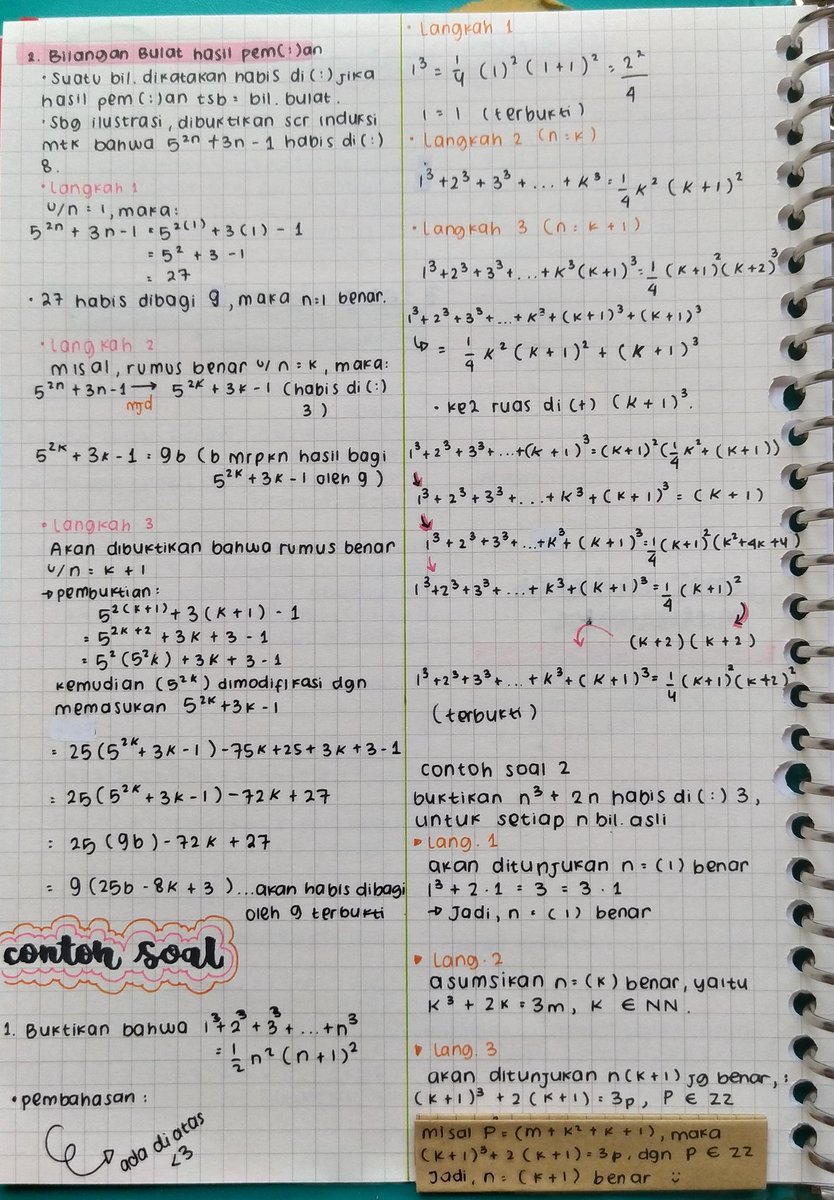 2. Bilangan Bulat hasil pem(:)an
• Suatu bil. dikatakan habis di(:) jika
hasil pem(:)an tsb = bil. bulat.
• Sbg ilustrasi, dibuktikan scr induksi
mtk bahwa 5²ⁿ + 3n - 1 habis di(:)
8.
• Langkah 1
u/n = 1, maka:
5²ⁿ + 3n - 1 = 5²⁽¹⁾ + 3(1) - 1
= 5² + 3 - 1
= 27
• 27 habis dibagi 9, maka n=1 benar.
• Langkah 2
misal, rumus benar u/n = k, maka:
5²ⁿ + 3n - 1 → 5²ᵏ + 3k - 1 (habis di(:)
mjd 3)
5²ᵏ + 3k - 1 = 9b (b mrpkn hasil bagi
5²ᵏ + 3k - 1 oleh 9)
• Langkah 3
Akan dibuktikan bahwa rumus benar
u/n = k + 1
→ pembuktian:
5²⁽ᵏ⁺¹⁾ + 3(k + 1) - 1
= 5²ᵏ⁺² + 3k + 3 - 1
= 5² (5²k) + 3k + 3 - 1
kemudian (5²ᵏ) dimodifikasi dgn
memasukan 5²ᵏ + 3k - 1
= 25(5²ᵏ + 3k - 1) - 75k + 25 + 3k + 3 - 1
= 25(5²ᵏ + 3k - 1) - 72k + 27
= 25 (9b) - 72k + 27
= 9(25b - 8k + 3)...akan habis dibagi
oleh 9 terbukti
contoh soal
1. Buktikan bahwa 1³ + 2³ + 3³ + ... + n³
= 1/2 n² (n + 1)²
• pembahasan:
→ ada di atas
<3
• Langkah 1
1³ = 1/4 (1)² (1 + 1)² = 2²/4
1 = 1 (terbukti)
• Langkah 2 (n = k)
1³ + 2³ + 3³ + ... + k³ = 1/4 k² (k + 1)²
• Langkah 3 (n = k + 1)
1³ + 2³ + 3³ + ... + k³ (k + 1)³ = 1/4 (k + 1)² (k + 2)³
1³ + 2³ + 3³ + ... + k³ + (k + 1)³ + (k + 1)³
↳ = 1/4 k² (k + 1)² + (k + 1)³
• ke2 ruas di(+) (k + 1)³.
1³ + 2³ + 3³ + ... + (k + 1)³ = (k + 1)² (1/4 k² + (k + 1))
1³ + 2³ + 3³ + ... + k³ + (k + 1)³ = (k + 1)
1³ + 2³ + 3³ + ... + k³ + (k + 1)³ = 1/4 (k + 1)² (k² + 4k + 4)
1³ + 2³ + 3³ + ... + k³ + (k + 1)³ = 1/4 (k + 1)²
(k + 2)(k + 2)
1³ + 2³ + 3³ + ... + k³ + (k + 1)³ = 1/4 (k + 1)² (k + 2)²
(terbukti)
contoh soal 2
buktikan n³ + 2n habis di(:) 3,
untuk setiap n bil. asli
▸ Lang. 1
akan ditunjukan n = (1) benar
1³ + 2 · 1 = 3 = 3 · 1
→ Jadi, n = (1) benar
▸ Lang. 2
asumsikan n = (k) benar, yaitu
k³ + 2k = 3m, k ∈ NN.
▸ Lang. 3
akan ditunjukan n(k + 1) jg benar, :
(k + 1)³ + 2 (k + 1) = 3p, P ∈ ZZ
misal P = (m + k² + k + 1), maka
(k + 1)³ + 2 (k + 1) = 3p, dgn P ∈ ZZ
Jadi, n = (k + 1) benar :)